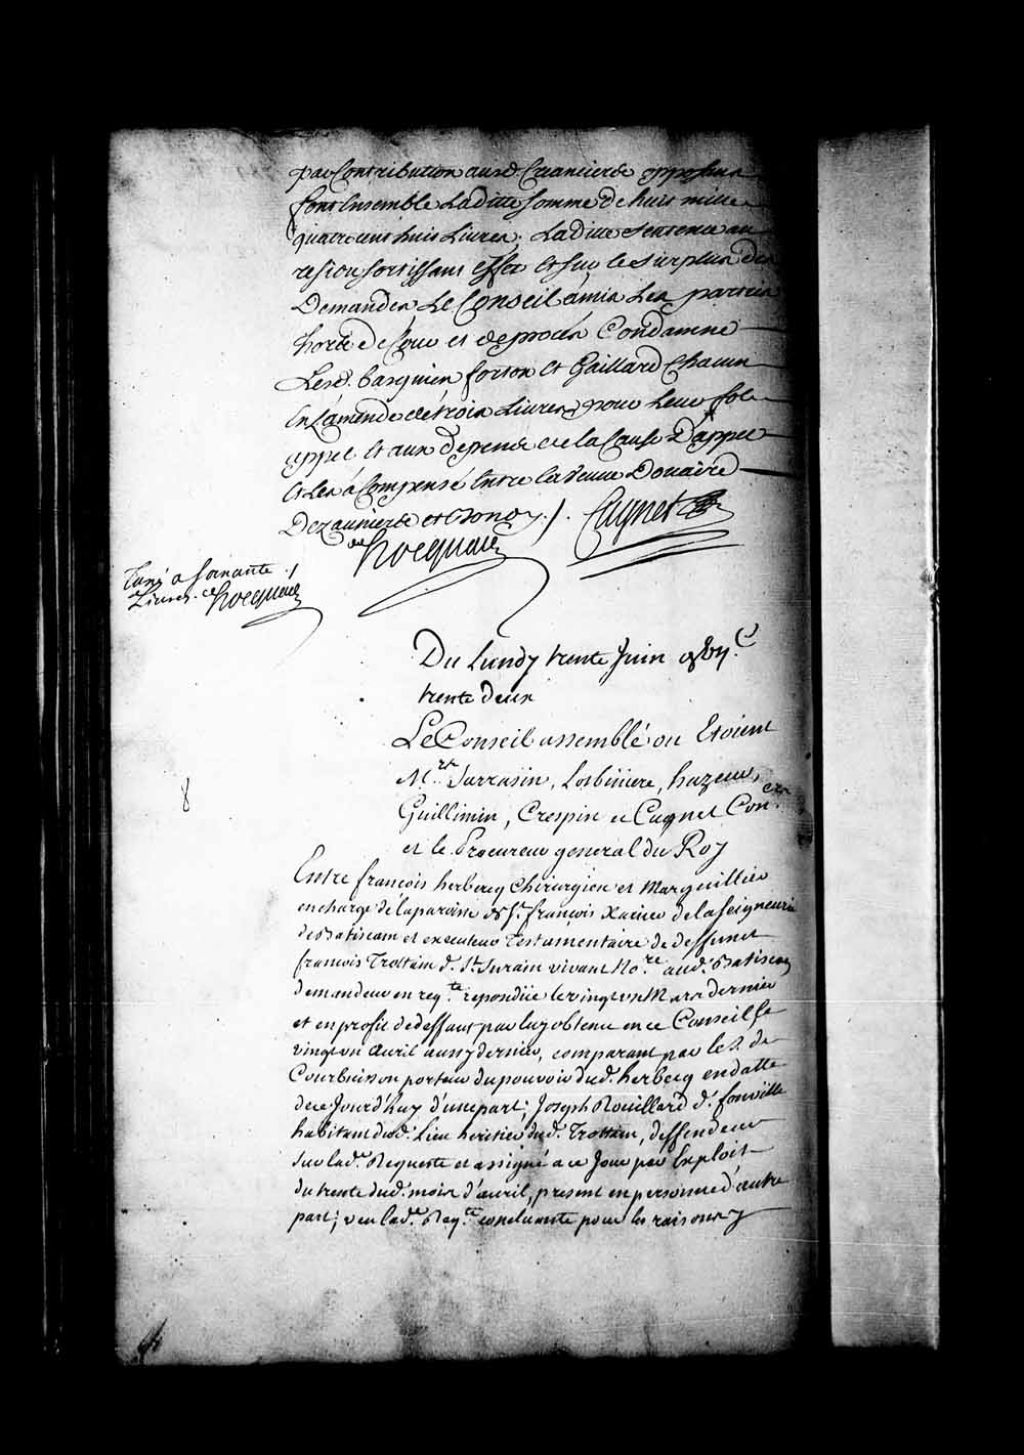 par Contribution ausd. Creanciers opposans
font Ensemble Laditte somme de huit mille
quatre cent huit Livres; Laditte sentence au
residu sortissant effet Et sur le surplus des
Demandes Le Conseil á mis Les parties
hors de Cour et de procés Condamne
Lesd. Gasquien forton Et Gaillard Chacun
En L'amende de trois Livres pour Leur fol
appel Et aux depens de la Cause D'appel
Et Les á Compensé Entre la veuve Douaire
Dezauniers et ./.
Hocquart Cugnet
Taxé a soixante
Livres ./. Hocquart
Du Lundy trente Juin
trente deux
Le Conseil assemblé ou Etoient
Mrs. Sarrasin, Lotbiniere, hazeur,
Guillimin, Crespin et Cugnet Con.ers
et le Procureur general du Roy
8
Entre françois herbecq Chirurgien et Marguillier
en charge de la paroisse de St. françois Xavier de la seigneurie
de Batiscam et executeur Testamentaire de deffunct
francois Trottain d. St. Surain vivant No.re aud. Batiscan
demandeur en req.te repondüe le vingt un Mars dernier
et en profit de deffaut par luy obtenu en ce Conseil le
vingt un avril aussy dernier, comparant par le S. de
Courbuisson porteur du pouvoir dud. herbecq en datte
de ce Jourd'huy d'une part; Joseph Rouillard d. fonville
habitant dud. Lieu heritier dud. Trottain, deffendeur
sur lad. Requeste et assigné a ce Jour par Exploit
du trente dud. mois d'avril, present en personne d'autre
part; veu lad.e Req.te concluante pour les raisons y